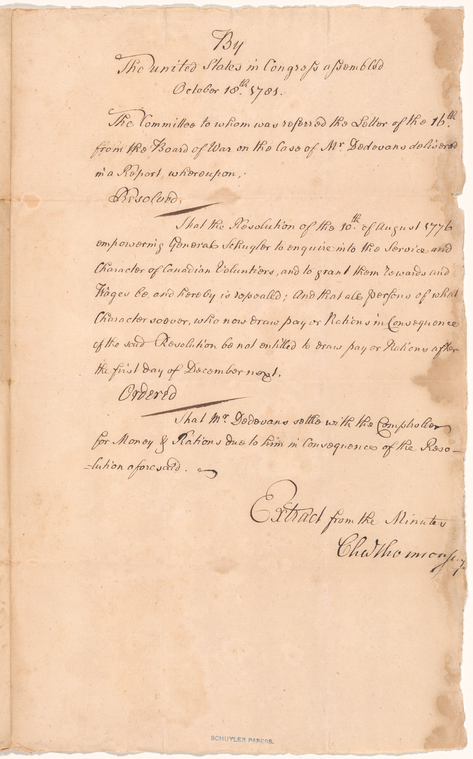 By
The United States in Congress assembled
October 18th 1781.
The Committee to whom was referred the Letter of the 16th
from the Board of War on the Case of Mr. Dedevans delivered
in a Report, whereupon,
Resolved
That the Resolution of the 10th of August 1776
empowering General Schuyler to enquire into the Service and
Character of Canadian Voluntiers, and to grant them rewards and
Wages be, and hereby is repealed; And that all persons of what
Character soever, who now draw pay or Rations in Consequence
of the said Resolution be not entitled to draw pay or Rations after
the first day of December next.
Ordered
That Mr. Dedevans settle with the Comptroller
for Money & Rations due to him in Consequence of the Reso-
-lution aforesaid.
Extract from the Minutes
Chas Thomson Secy
SCHUYLER PAPERS.